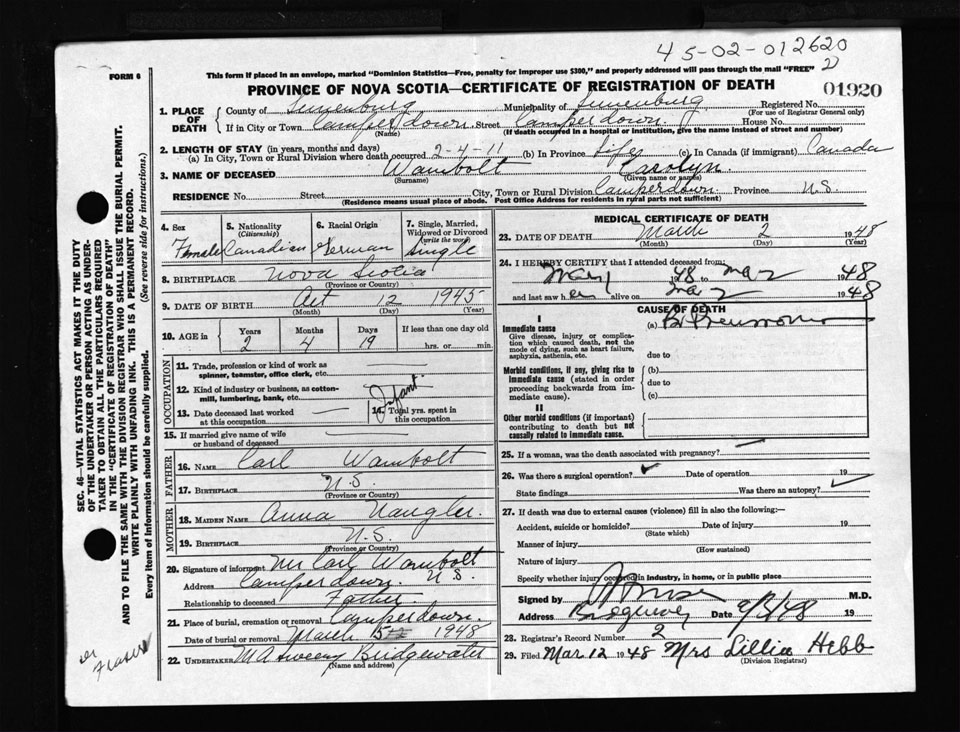 45-02-012620
2
FORM 6
This form if placed in an envelope, marked "Dominion Statistics—Free, penalty for improper use $300," and properly addressed will pass through the mail "FREE"
PROVINCE OF NOVA SCOTIA—CERTIFICATE OF REGISTRATION OF DEATH
01920
1. PLACE OF DEATH
County of Lunenburg Municipality of Lunenburg Registered No.
(For use of Registrar General only)
If in City or Town Camperdown Street Camperdown House No.
(Name) (If death occurred in a hospital or institution, give the name instead of street and number)
2. LENGTH OF STAY (in years, months and days)
(a) In City, Town or Rural Division where death occurred 2-4-11 (b) In Province Life (c) In Canada (if immigrant) Canada
3. NAME OF DECEASED Wambolt Carolyn
(Surname) (Given name or names)
RESIDENCE No. Street City, Town or Rural Division Camperdown Province N.S.
(Residence means usual place of abode. Post Office Address for residents in rural parts not sufficient)
4. Sex
Female
5. Nationality
(Citizenship)
Canadian
6. Racial Origin
German
7. Single, Married, Widowed or Divorced
(write the word)
Single
8. BIRTHPLACE Nova Scotia
(Province or Country)
9. DATE OF BIRTH Oct 12 1945
(Month) (Day) (Year)
10. AGE in
Years Months Days If less than one day old
2 4 19 hrs. or min.
OCCUPATION
11. Trade, profession or kind of work as
spinner, teamster, office clerk, etc.
12. Kind of industry or business, as cotton-
mill, lumbering, bank, etc.
Infant
13. Date deceased last worked
at this occupation
14. Total yrs. spent in
this occupation
15. If married give name of wife
or husband of deceased
FATHER
16. NAME Carl Wambolt
17. BIRTHPLACE N.S.
(Province or Country)
MOTHER
18. MAIDEN NAME Anna Naugler
19. BIRTHPLACE N.S.
(Province or Country)
20. Signature of informant Mr Carl Wambolt
Address Camperdown. N.S.
Relationship to deceased Father
21. Place of burial, cremation or removal Camperdown.
Date of burial or removal March 5th 1948
22. UNDERTAKER M A Sweeny Bridgewater
(Name and address)
MEDICAL CERTIFICATE OF DEATH
23. DATE OF DEATH March 2 1948
(Month) (Day) (Year)
24. I HEREBY CERTIFY that I attended deceased from:
Mar 1 1948 to Mar 2 1948
and last saw h er alive on Mar 2 1948
CAUSE OF DEATH
I
Immediate cause (a) Br Pneumonia
Give disease, injury or complication which caused death, not the mode of dying, such as heart failure, asphyxia, asthenia, etc.
due to
Morbid conditions, if any, giving rise to immediate cause (stated in order proceeding backwards from immediate cause).
(b)
due to
(c)
II
Other morbid conditions (if important) contributing to death but not causally related to immediate cause.
25. If a woman, was the death associated with pregnancy?
26. Was there a surgical operation? Date of operation 19
State findings Was there an autopsy?
27. If death was due to external causes (violence) fill in also the following:—
Accident, suicide or homicide? Date of injury 19
(State which)
Manner of injury
(How sustained)
Nature of injury
Specify whether injury occurred in industry, in home, or in public place
Signed by M.D.
Address Date 19
28. Registrar's Record Number 2
29. Filed Mar 12 1948 Mrs Lillia Hebb
(Division Registrar)
SEC. 46—VITAL STATISTICS ACT MAKES IT THE DUTY
OF THE UNDERTAKER OR PERSON ACTING AS UNDER-
TAKER TO OBTAIN ALL THE PARTICULARS REQUIRED
IN THE "CERTIFICATE OF REGISTRATION OF DEATH"
AND TO FILE THE SAME WITH THE DIVISION REGISTRAR WHO SHALL ISSUE THE BURIAL PERMIT.
WRITE PLAINLY WITH UNFADING INK. THIS IS A PERMANENT RECORD.
Every item of information should be carefully supplied. (See reverse side for instructions.)
Dr
Fraser